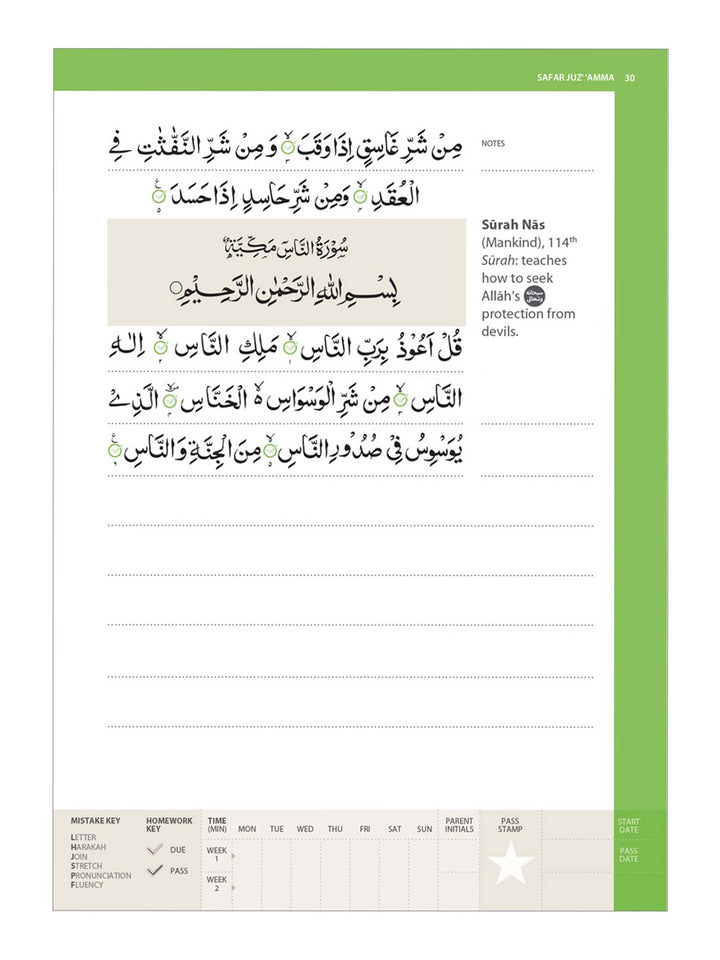 SAFAR JUZ' 'AMMA 30
مِنْ شَرِّ غَاسِقٍ اِذَا وَقَبَ ۙ وَ مِنْ شَرِّ النَّفّٰثٰتِ فِي
الْعُقَدِ ۙ وَمِنْ شَرِّ حَاسِدٍ اِذَا حَسَدَ ࣖ
سُوْرَةُ النَّاسِ مَكِّيَّةٌ
بِسْمِ اللهِ الرَّحْمٰنِ الرَّحِيْمِ ○
قُلْ اَعُوْذُ بِرَبِّ النَّاسِ ۙ مَلِكِ النَّاسِ ۙ اِلٰهِ
النَّاسِ ۙ مِنْ شَرِّ الْوَسْوَاسِ ە الْخَنَّاسِ الَّذِيْ
يُوَسْوِسُ فِيْ صُدُوْرِ النَّاسِ ۙ مِنَ الْجِنَّةِ وَ النَّاسِ ࣖ
NOTES
Sūrah Nās
(Mankind), 114th
Sūrah: teaches
how to seek
Allāh's
protection from
devils.
MISTAKE KEY
LETTER
HARAKAH
JOIN
STRETCH
PRONUNCIATION
FLUENCY
HOMEWORK
KEY
DUE
PASS
TIME
(MIN) MON TUE WED THU FRI SAT SUN
WEEK
1
WEEK
2
PARENT
INITIALS
PASS
STAMP
START
DATE
PASS
DATE